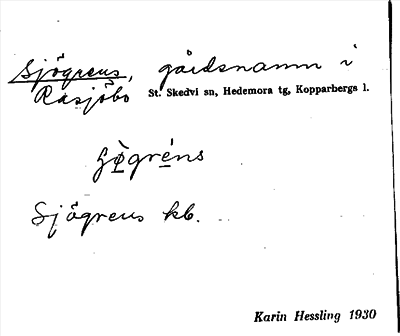 Sjögrens, gårdsnamn i
Rasjöbo St. Skedvi sn, Hedemora tg, Kopparbergs l.
Sjögrens kb.
Karin Hessling 1930